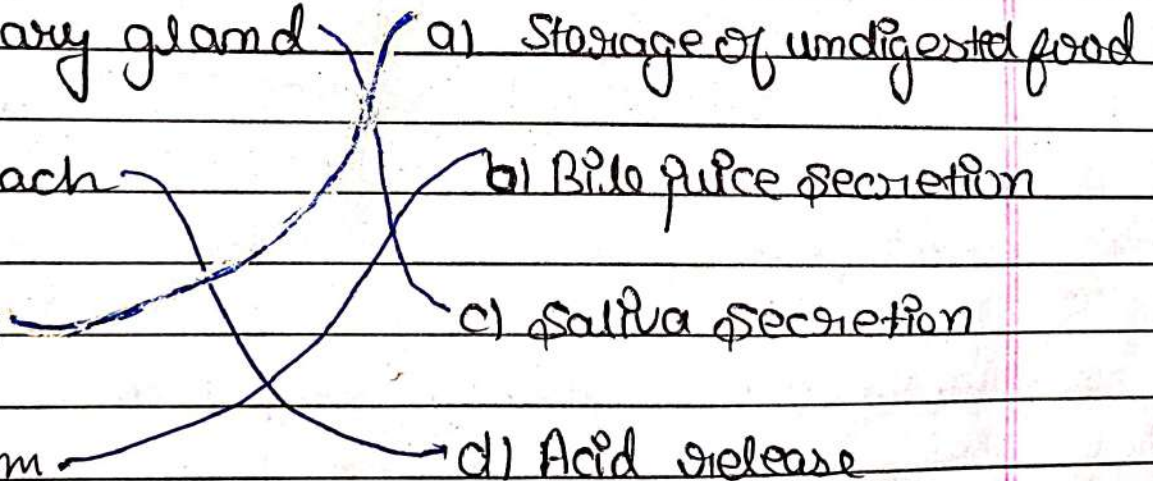 ary gland a) Storage of undigested food
ach b) Bile juice secretion
c) Saliva secretion
m d) Acid release